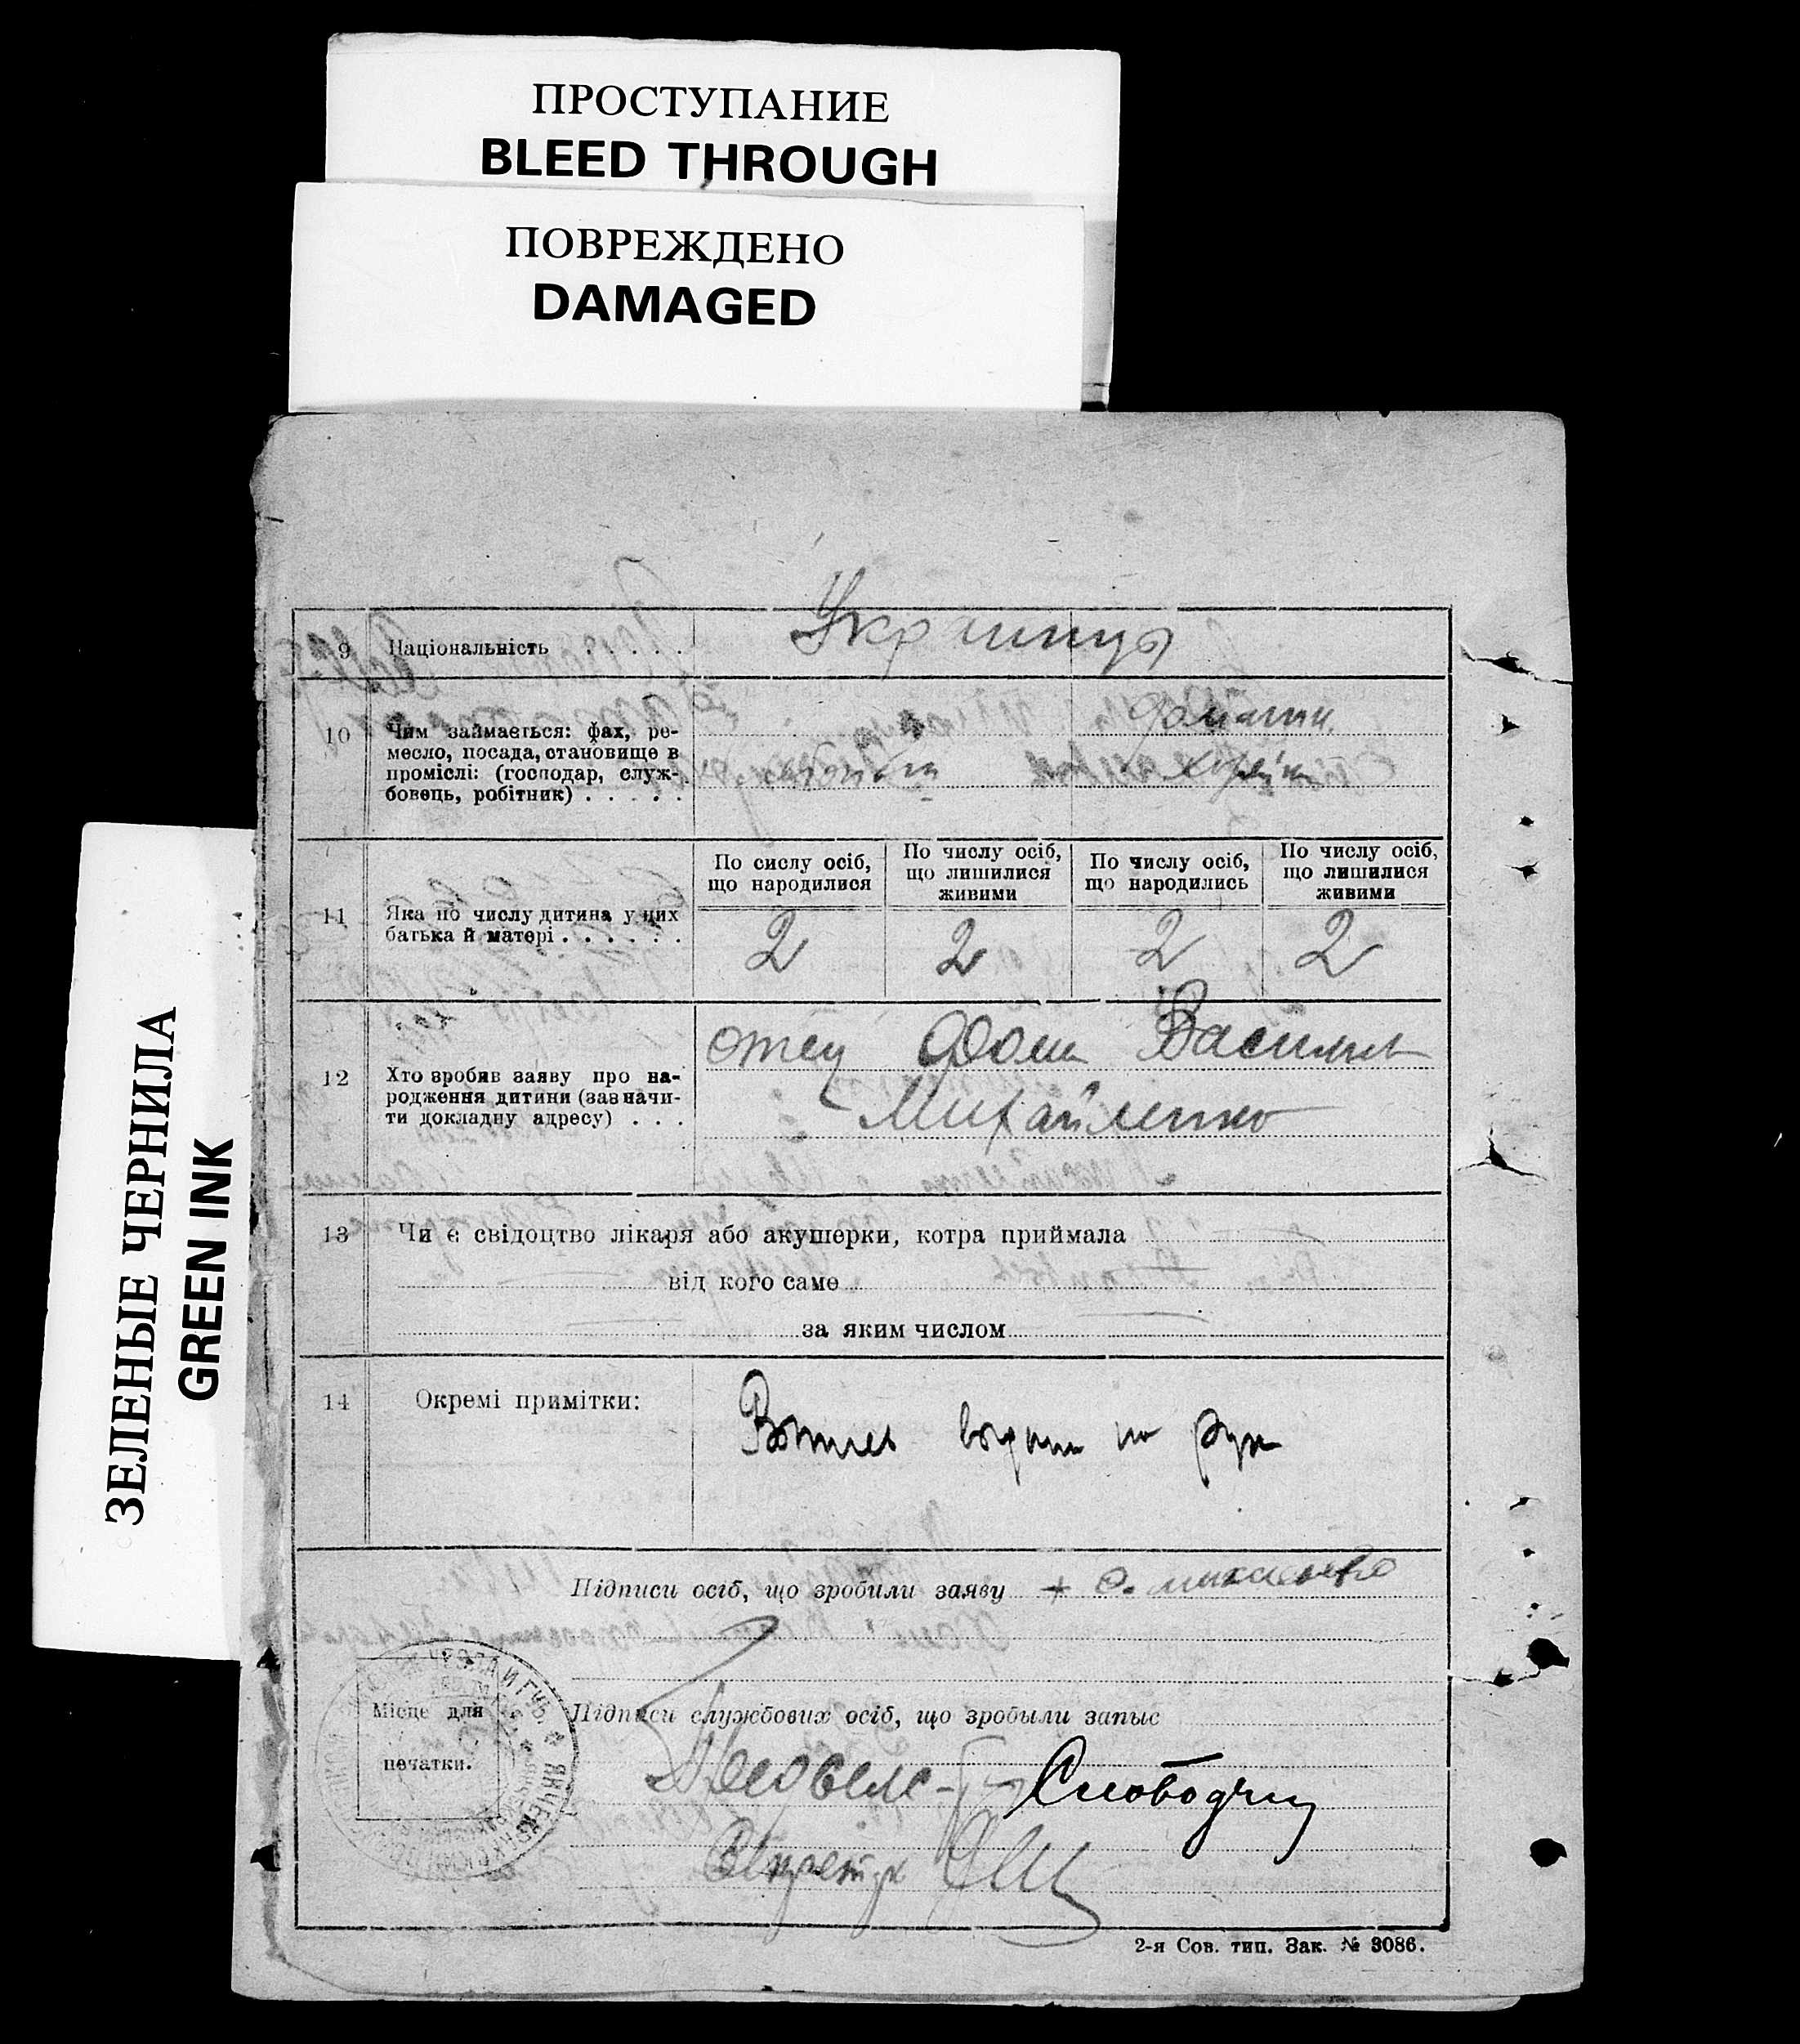 ПРОСТУПАНИЕ
BLEED THROUGH
ПОВРЕЖДЕНО
DAMAGED
ЗЕЛЕНЫЕ ЧЕРНИЛА
GREEN INK
9 Національність . . . . . Украинцы
10 Чим займається: фах, ре-
месло, посада, становище в
проміслі: (господар, служ-
бовець, робітник) . . . . .
домашн.
11 Яка по числу дитина у цих
батька й матері . . . . . .
По сислу осіб,
що народилися
По числу осіб,
що лишилися
живими
По числу осіб,
що народились
По числу осіб,
що лишилися
живими
2 2 2 2
12 Хто зробив заяву про на-
родження дитини (зазначи-
ти докладну адресу) . . .
отец Фома Васильев
Михайленко
13 Чи є свідоцтво лікаря або акушерки, котра приймала
від кого саме
за яким числом
14 Окремі примітки:
Підписи осіб, що зробили заяву +
Місце для
печатки.
Підписи службових осіб, що зробыли запыс
Слободчик
2-я Сов. тип. Зак. № 3086.